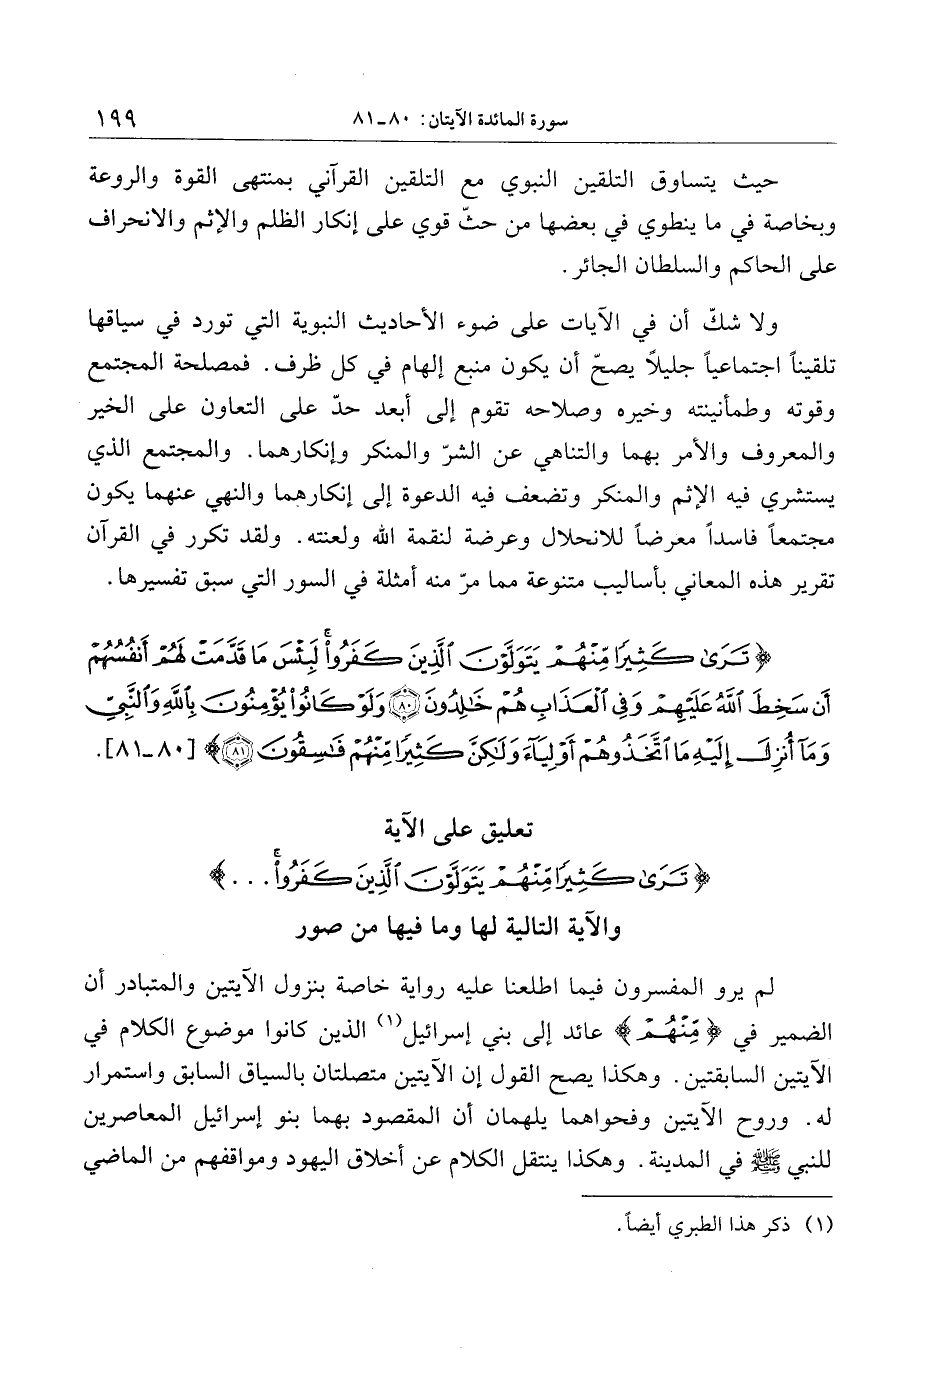 سورة المائدة الآيتان: ٨٠-٨١ ١٩٩
حيث يتساوق التلقين النبوي مع التلقين القرآني بمنتهى القوة والروعة
وبخاصة في ما ينطوي في بعضها من حثّ قوي على إنكار الظلم والإثم والانحراف
على الحاكم والسلطان الجائر.
ولا شكّ أن في الآيات على ضوء الأحاديث النبوية التي تورد في سياقها
تلقيناً اجتماعياً جليلاً يصحّ أن يكون منبع إلهام في كل ظرف. فمصلحة المجتمع
وقوته وطمأنينته وخيره وصلاحه تقوم إلى أبعد حدّ على التعاون على الخير
والمعروف والأمر بهما والتناهي عن الشرّ والمنكر وإنكارهما. والمجتمع الذي
يستشري فيه الإثم والمنكر وتضعف فيه الدعوة إلى إنكارهما والنهي عنهما يكون
مجتمعاً فاسداً معرضاً للانحلال وعرضة لنقمة الله ولعنته. ولقد تكرر في القرآن
تقرير هذه المعاني بأساليب متنوعة مما مرّ منه أمثلة في السور التي سبق تفسيرها.
﴿تَرَىٰ كَثِيرًا مِّنْهُمْ يَتَوَلَّوْنَ ٱلَّذِينَ كَفَرُواْۚ لَبِئْسَ مَا قَدَّمَتْ لَهُمْ أَنفُسُهُمْ
أَن سَخِطَ ٱللَّهُ عَلَيْهِمْ وَفِي ٱلْعَذَابِ هُمْ خَٰلِدُونَ ۝٨٠ وَلَوْ كَانُواْ يُؤْمِنُونَ بِٱللَّهِ وَٱلنَّبِيِّ
وَمَآ أُنزِلَ إِلَيْهِ مَا ٱتَّخَذُوهُمْ أَوْلِيَآءَ وَلَٰكِنَّ كَثِيرًا مِّنْهُمْ فَٰسِقُونَ ۝٨١﴾ [٨٠-٨١].
تعليق على الآية
﴿تَرَىٰ كَثِيرًا مِّنْهُمْ يَتَوَلَّوْنَ ٱلَّذِينَ كَفَرُواْۚ...﴾
والآية التالية لها وما فيها من صور
لم يرو المفسرون فيما اطلعنا عليه رواية خاصة بنزول الآيتين والمتبادر أن
الضمير في ﴿مِّنْهُمْ﴾ عائد إلى بني إسرائيل(١) الذين كانوا موضوع الكلام في
الآيتين السابقتين. وهكذا يصح القول إن الآيتين متصلتان بالسياق السابق واستمرار
له. وروح الآيتين وفحواهما يلهمان أن المقصود بهما بنو إسرائيل المعاصرين
للنبي ﷺ في المدينة. وهكذا ينتقل الكلام عن أخلاق اليهود ومواقفهم من الماضي
(١) ذكر هذا الطبري أيضاً.